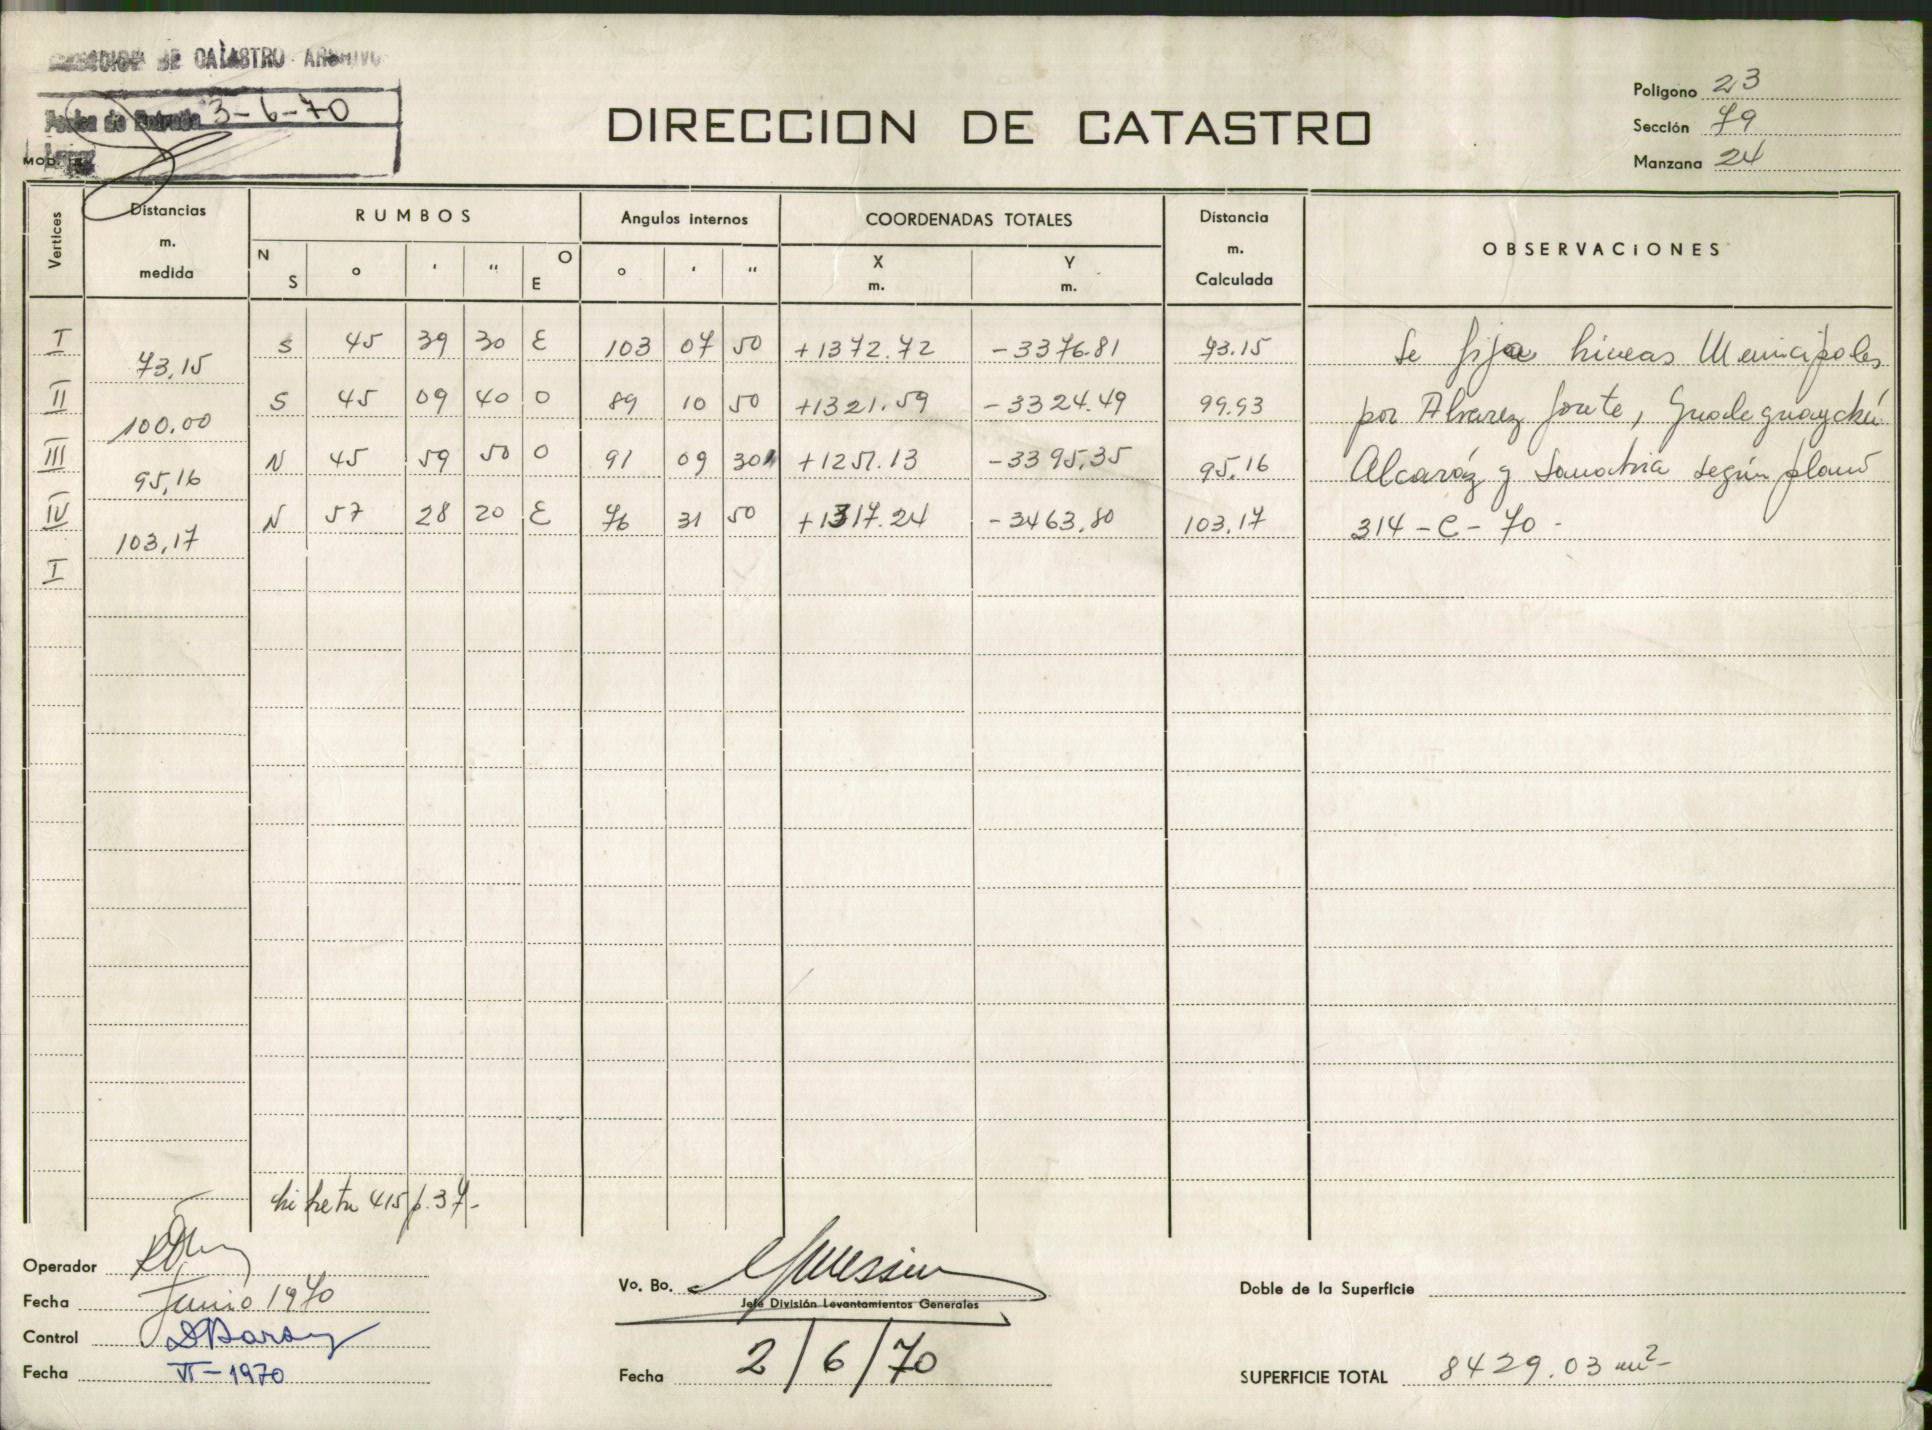 DIRECCION DE CATASTRO ARCHIVO
Fecha de Entrada 3-6-70
MOD.
DIRECCION DE CATASTRO
Poligono 23
Sección 79
Manzana 24
Vertices
Distancias m. medida
RUMBOS
Angulos internos
COORDENADAS TOTALES
Distancia m. Calculada
OBSERVACIONES
N S ° ' " O E ° ' " X m. Y m.
I S 45 39 30 E 103 07 50 +1372.72 -3376.81 73.15 Se fija Lineas Municipales
73,15
II S 45 09 40 O 89 10 50 +1321.59 -3324.49 99.93 por Alvarez Jonte, Gualeguaychú
100.00
III N 45 59 50 O 91 09 30 +1251.13 -3395,35 95,16 Alcaráz y Sanabria según plano
95,16
IV N 57 28 20 E 76 31 50 +1317.24 -3463,80 103,17 314-C-70-
103,17
I
Libreta 415 p. 37-
Operador
Fecha Junio 1970
Control
Fecha VI-1970
Vo. Bo.
Jefe División Levantamientos Generales
Fecha 2/6/70
Doble de la Superficie
SUPERFICIE TOTAL 8429.03 m²-